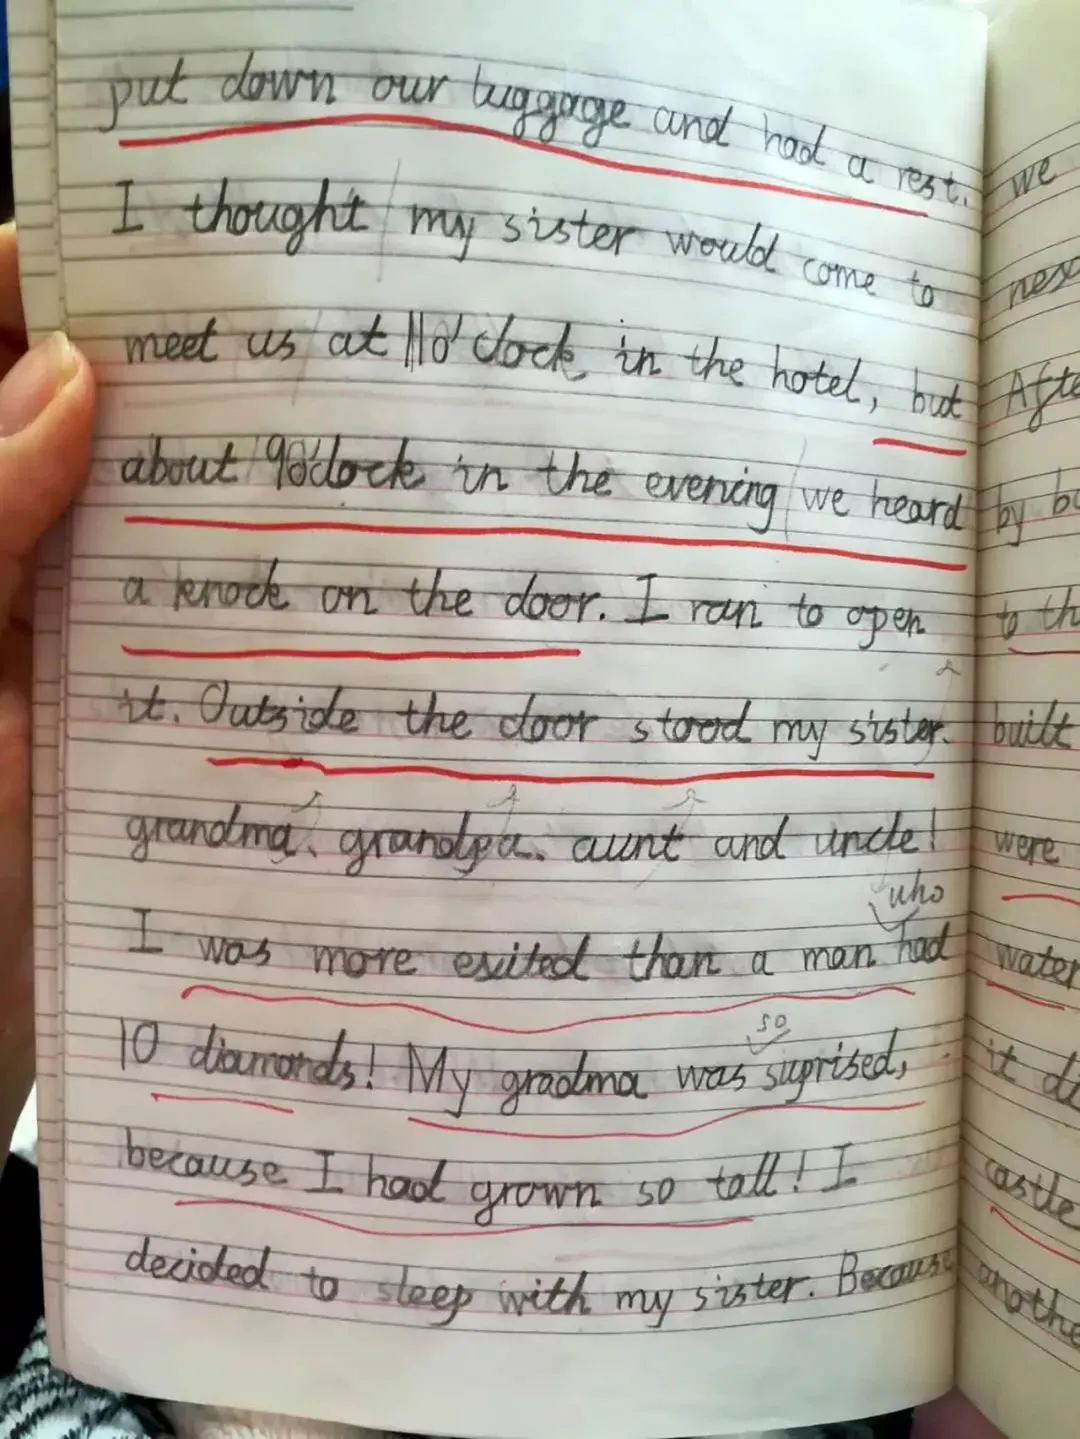 put down our luggage and had a rest.
I thought my sister would come to
meet us at 11 o'clock in the hotel, but
about 9o'clock in the evening we heard
a knock on the door. I ran to open
it. Outside the door stood my sister.
grandma、grandpa、aunt and uncle!
who
I was more exited than a man had
so
10 diamonds! My gradma was suprised,
because I had grown so tall! I
decided to sleep with my sister. Because
we
by
to
built
were
water
it
castle